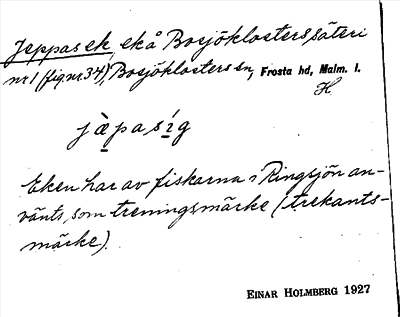 Jeppas ek, ek å Bosjöklosters säteri
nr 1 (fig nr 34), Bosjöklosters sn, Frosta hd, Malm. l.
H.
jà̱pasí̱g
Eken har av fiskarna i Ringsjön an-
vänts som treningsmärke (trekants-
märke).
EINAR HOLMBERG 1927